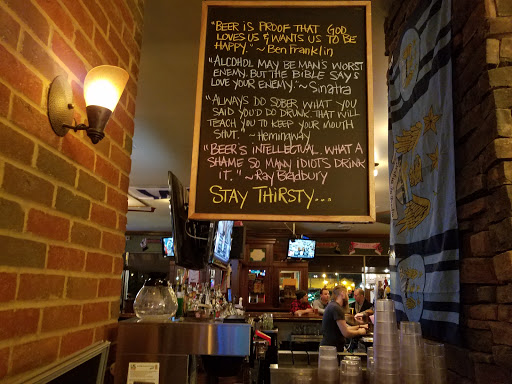 "BEER IS PROOF THAT GOD
LOVES US & WANTS US TO BE
HAPPY." ~ Ben Franklin
"ALCOHOL MAY BE MAN'S WORST
ENEMY. BUT THE BIBLE SAYS
LOVE YOUR ENEMY." ~ Sinatra
"ALWAYS DO SOBER WHAT YOU
SAID YOU'D DO DRUNK. THAT WILL
TEACH YOU TO KEEP YOUR MOUTH
SHUT." ~ Hemingway
"BEER'S INTELLECTUAL. WHAT A
SHAME SO MANY IDIOTS DRINK
IT." ~ Ray Bradbury
STAY THIRSTY...